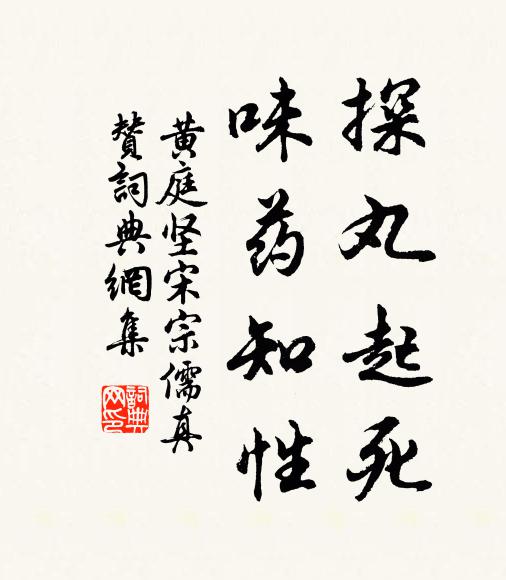 探丸起死
味药知性
黄庭坚宋宗儒真
赞詞典網集
詞典
网印